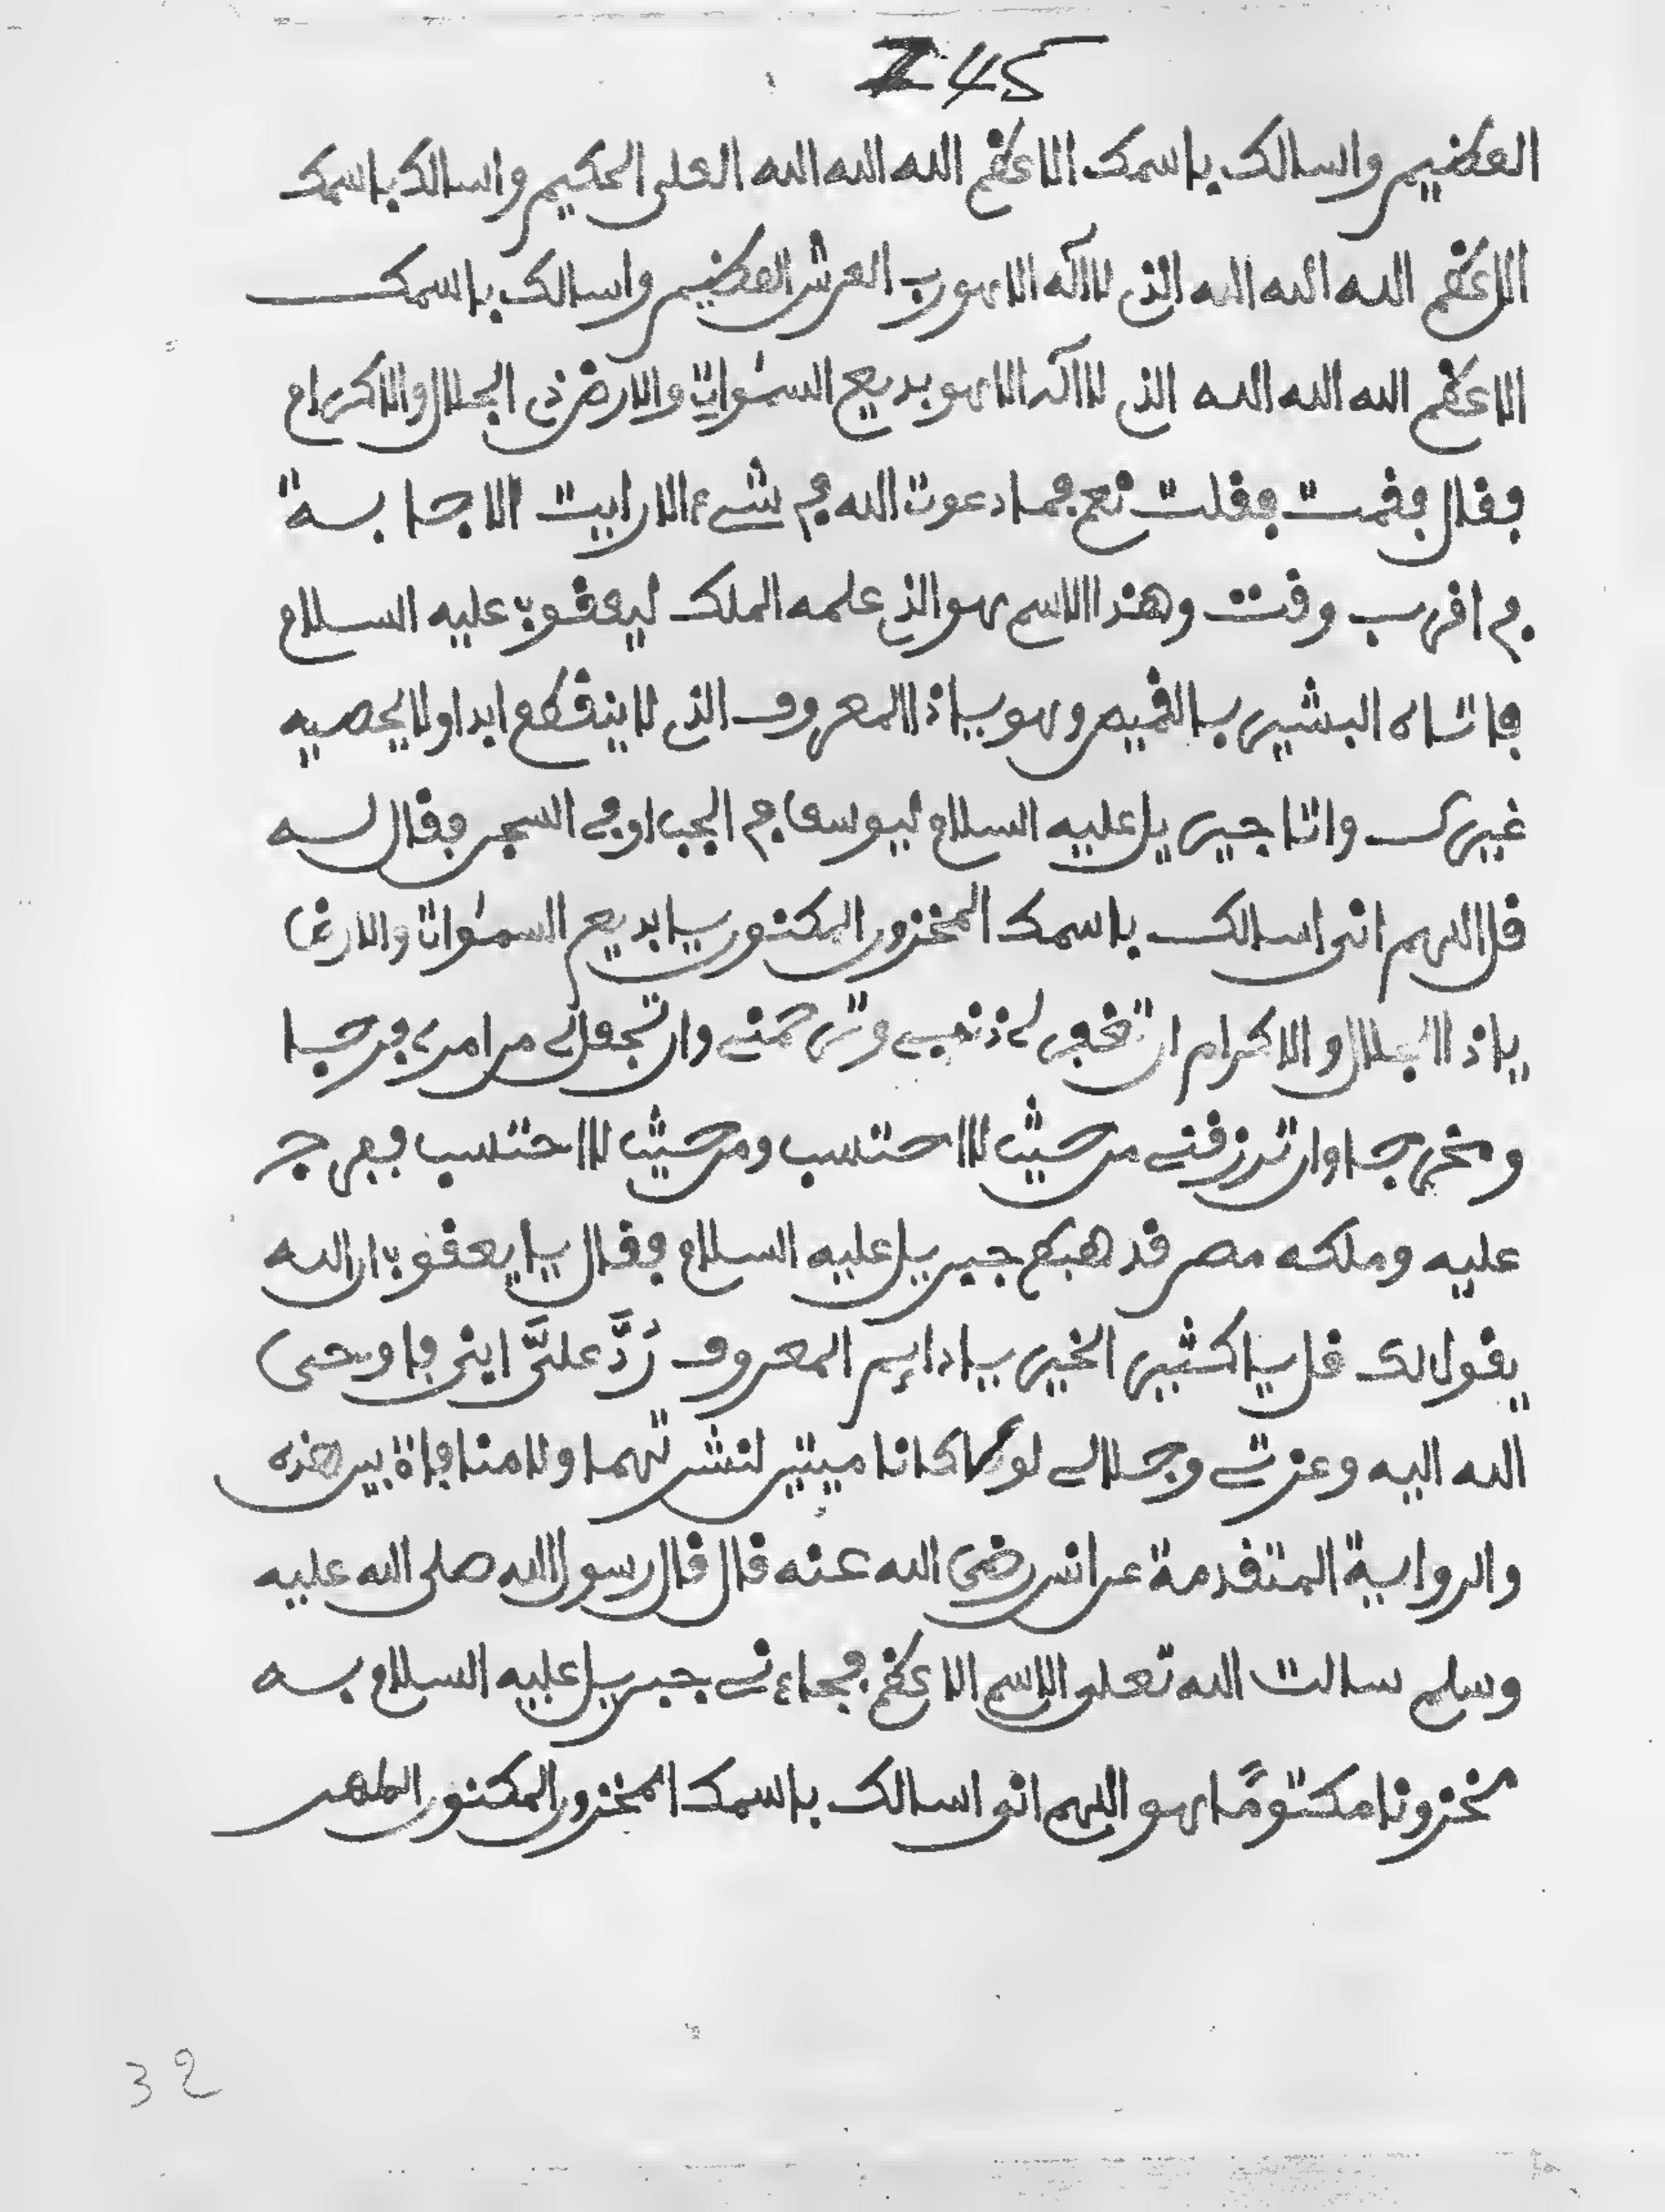 245
العظيم واسالك باسمك الاعظم الله الله الله العلى الحكيم واسالك باسمك
الاعظم الله الله الله الذى لا اله الا هو رب العرش العظيم واسالك باسمك
الاعظم الله الله الله الذى لا اله الا هو بديع السموات والارض ذى الجلال والاكرام
فقال فقمت فقلت نعم فما دعوت الله فى شىء الا رايت الاجابة
فى اقرب وقت وهذا الاسم هو الذى علمه الملك ليعقوب عليه السلام
فاتاه البشير بالقميص وهو ياذا المعروف الذى لا ينقطع ابدا ولا يحصيه
غيرك واتا جبريل عليه السلام ليوسف فى الجب او فى السجن فقال له
قل اللهم انى اسالك باسمك المخزون المكنون يا بديع السموات والارض
ياذا الجلال والاكرام ان تغفر لى ذنبى وترحمنى وان تجعل لى من امرى فرجا
ومخرجا وان ترزقنى من حيث احتسب ومن حيث لا احتسب ففرج
عليه وملكه مصر قد هبط جبريل عليه السلام فقال يا يعقوب ان الله
يقول لك قل يا كثير الخير يا دايم المعروف رُدَّ علىَّ ابنى فاوحى
الله اليه وعزتى وجلالى لو كانا ميتين لنشرتهما ولا منافاة بين هذه
والرواية المتقدمة عن انس رضى الله عنه قال قال رسول الله صلى الله عليه
وسلم سالت الله تعلى الاسم الاعظم فجاءنى جبريل عليه السلام به
مخزونا مكتومًا هو اللهم انى اسالك باسمك المخزون المكنون الطهر
32